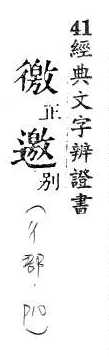 41經典文字辨證書
徼正
邀別
(彳部.P10)